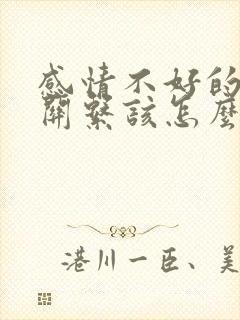 感情不好的
關繫該怎麼
港川一臣、美